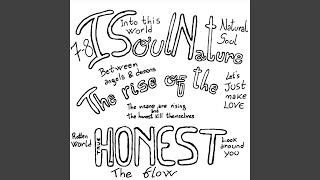 Into this
World
Natural
Soul
7-8 I SoulNature
Between
angels & demons
The rise of the
Let's
JUST
make
LOVE
The insane are rising
and
the honest kill themselves
Rotten
World
HONEST
Look
around
you
The flow